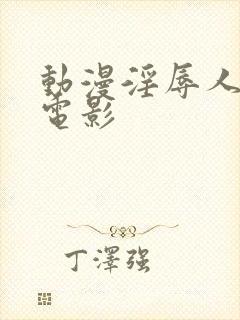 動漫淫辱人
電影
丁澤强